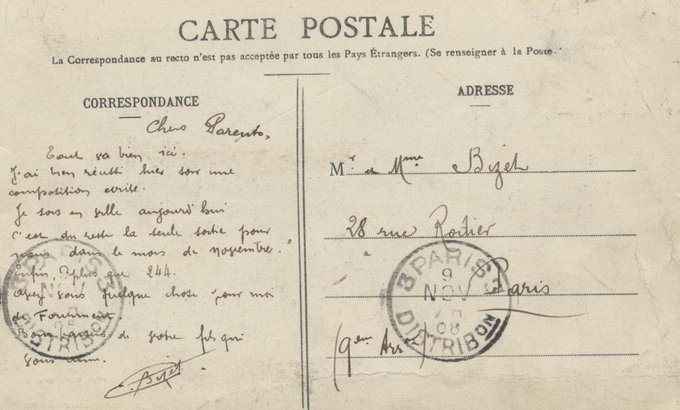 CARTE POSTALE
La Correspondance au recto n'est pas acceptée par tous les Pays Étrangers. (Se renseigner à la Poste.
CORRESPONDANCE
Chers Parents,
Tout va bien ici.
J'ai bien réussi hier soir une
composition écrite.
Je sors en ville aujourd'hui
c'est du reste la seule sortie pour
nous dans le mois de novembre.
Enfin, plus que 244.
Avez vous quelque chose pour moi
de Fourniment.
Bons de votre fils qui
vous aime.
Bizet
ADRESSE
Mr et Mme Bizet
28 rue Rodier
Paris
(9em Arr)
3 PARIS 3
9
NOV
08
DISTRIBON
PARIS 3
NOV
08
DISTRIBON